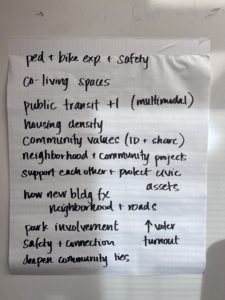 ped + bike exp + safety
co-living spaces
public transit +1 (multimodal)
housing density
community values (ID + share)
neighborhood + community projects
support each other + protect civic
assets
how new bldg fx
neighborhood + roads
park involvement ↑ voter
safety + connection turnout
deepen community ties